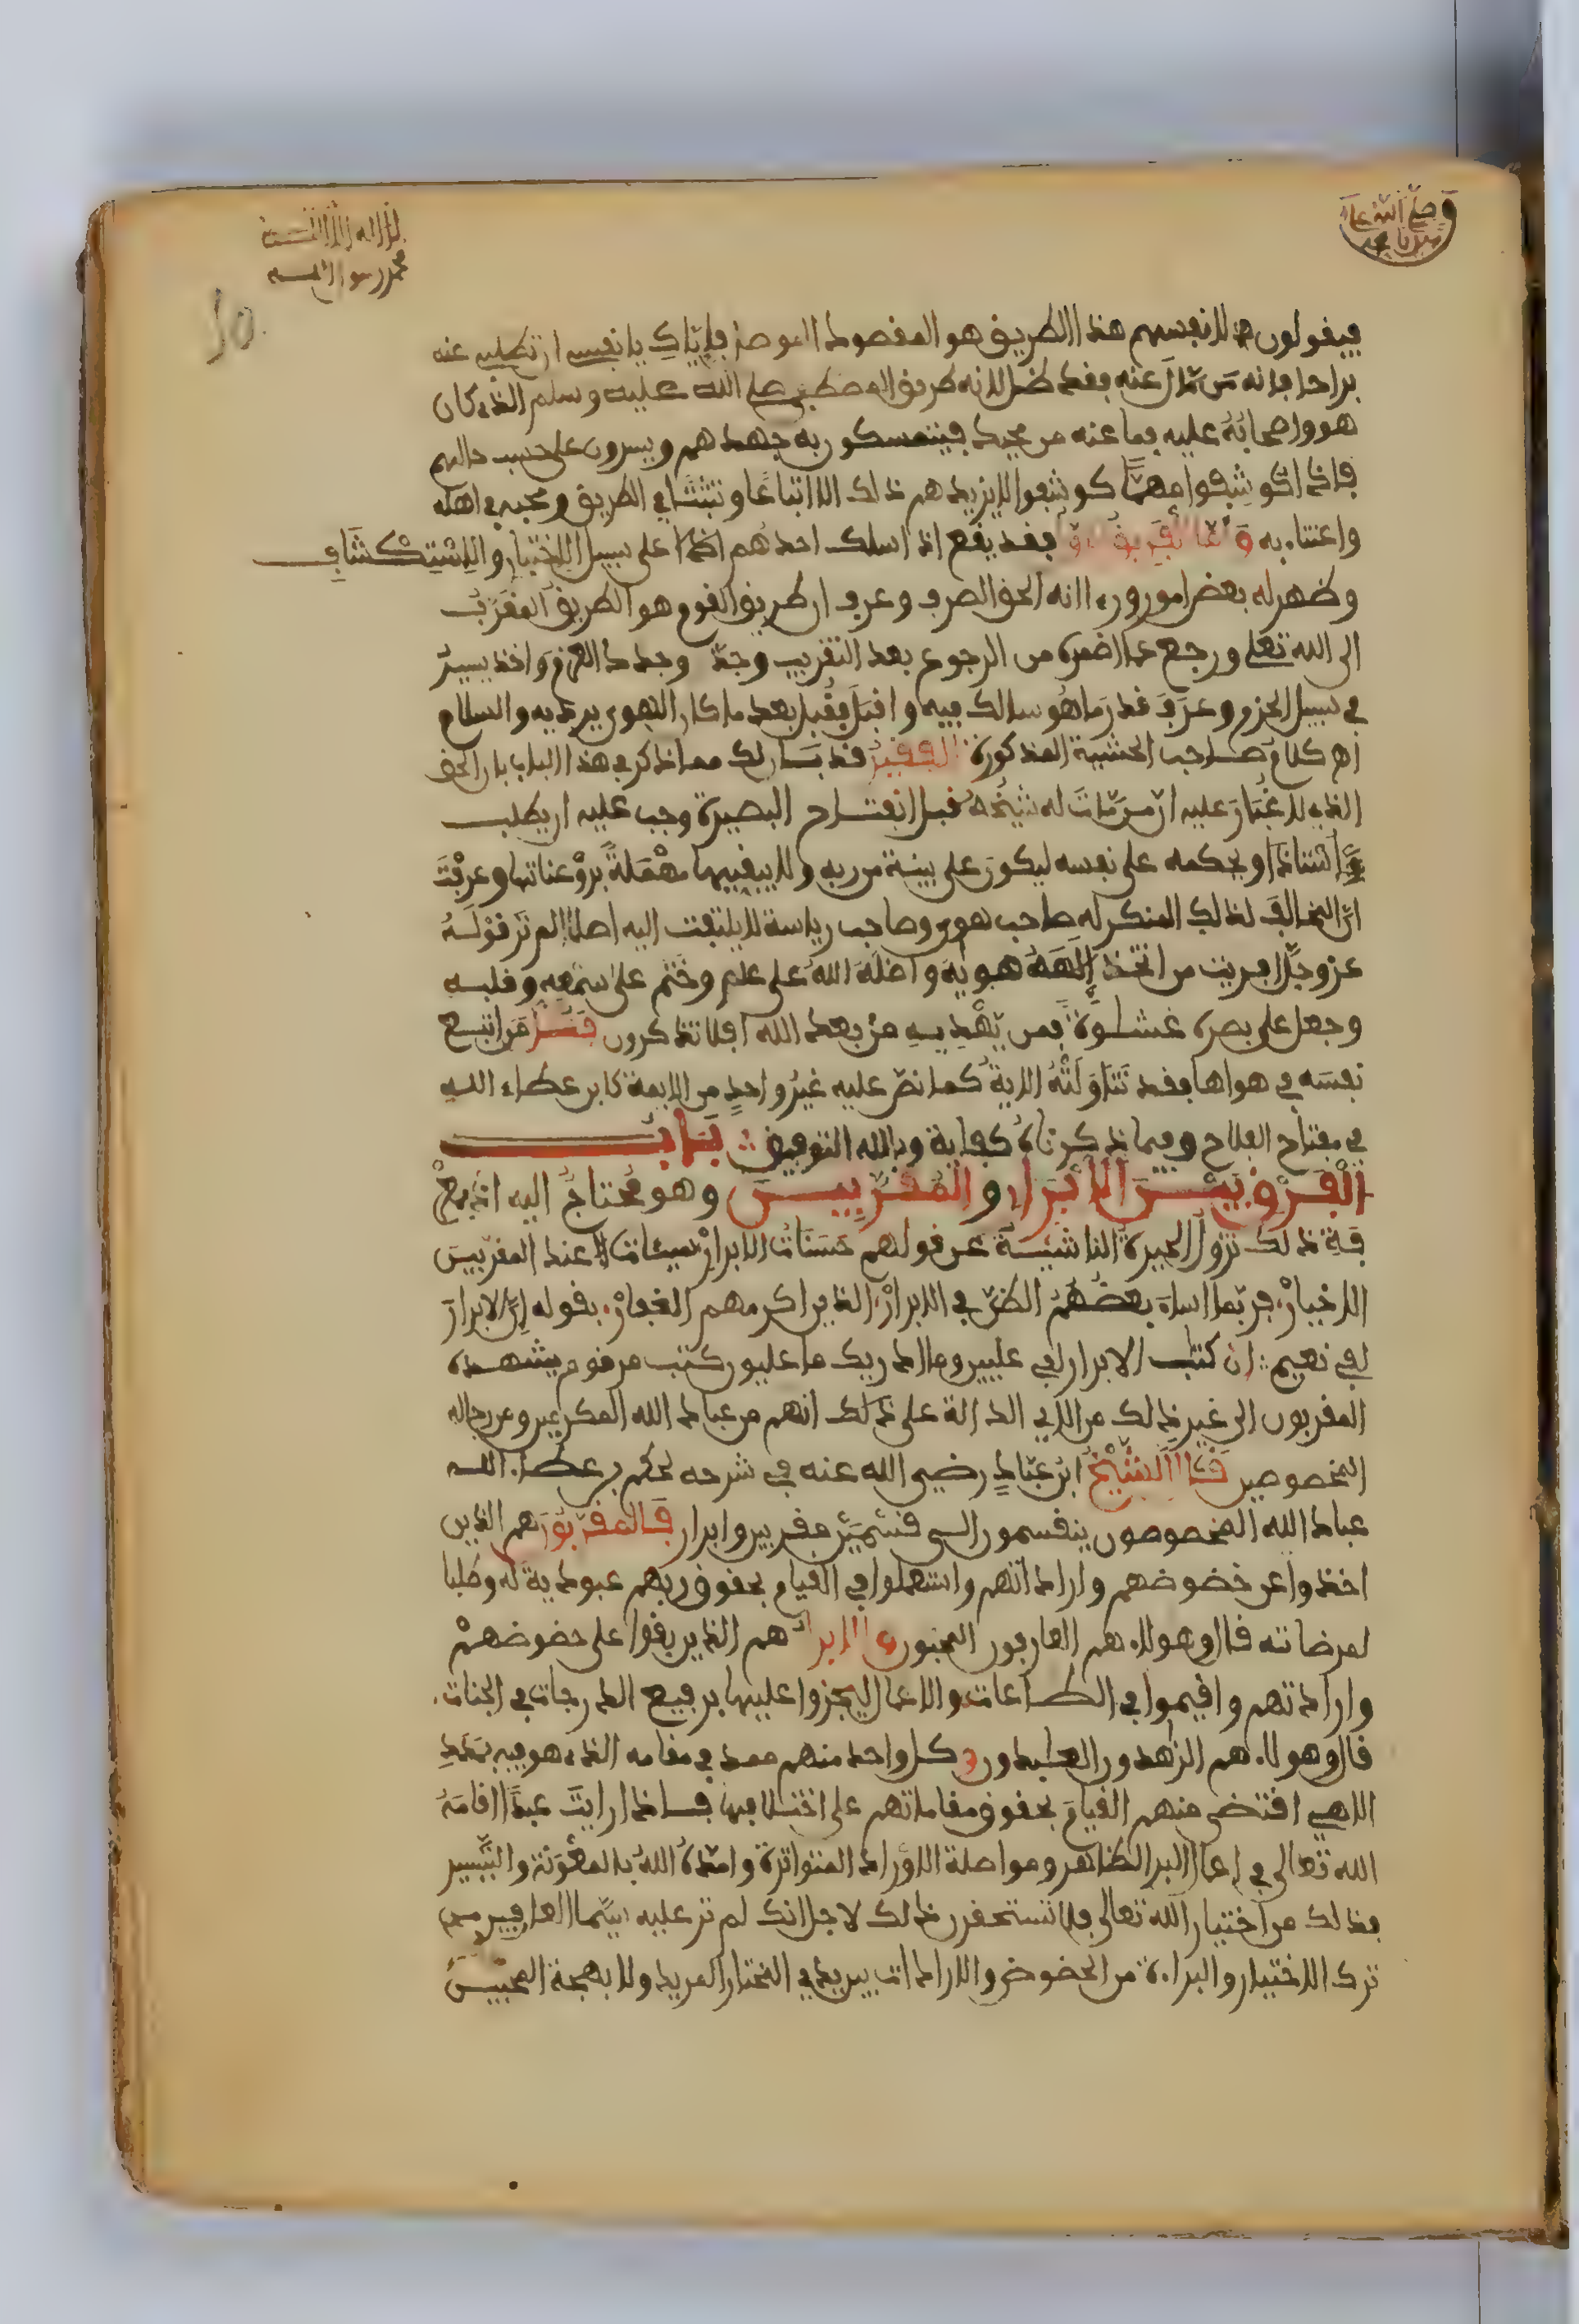 وصلى الله على
سيدنا محمد
لا اله الا الله
محمد رسول الله
10
فيقولون لانفسهم هذا الطريق هو المقصود الموصل فاياك يا نفس ان تطلب عنه
براحا فانه من مال عنه فقد ضل لانه طريق المصطفى صلى الله عليه وسلم الذي كان
هو واصحابه عليه فما عنه من محيد فيتمسكون به جهدهم ويسيرون على حسب حالهم
لا يزيدهم ذلك الا اتباعا وتثبتا في الطريق ومحبة في اهله
واعتناء به فقد يقع اذا سلك احدهم اخذا على سبيل الاختبار والاستكشاف
وظهر له بعض امور وراى انه الحق الصرف وعرف ان طريق القوم هو الطريق المقرب
الى الله تعلى ورجع عما اضمره من الرجوع بعد التقريب وجد وجدد العزم واخذ يسير
في سبيل الحزم وعرف قدر ما هو سالك فيه واقبل فقبل بعد ما كان الهوى يرديه والسلام
اهـ كلام صاحب الحشية المذكورة الفقير قد بان لك مما ذكر في هذا الباب بان الحق
الذي لا غبار عليه ان من مات له شيخه قبل انفتاح البصيرة وجب عليه ان يطلب
استاذا ويحكمه على نفسه ليكون على بينة من ربه ولا يبقيها مهملة وعرفت
ان المخالف لذلك المنكر له صاحب هوى وصاحب رياسة لا يلتفت اليه اصلا الم تر قوله
عز وجل افريت من اتخذ الهه هويه واضله الله على علم وختم على سمعه وقلبه
وجعل على بصره غشاوة فمن يهديه من بعد الله افلا تذكرون من اتبع
نفسه في هواها فقد تناولته الاية كما نص عليه غير واحد من الايمة كابن عطاء الله
في مفتاح الفلاح وفيما ذكرناه كفاية وبالله التوفيق باب
الفرق بين الابرار والمقربين وهو محتاج اليه اذ بمعر
فة ذلك تزول الحيرة الناشية عن قولهم حسنات الابرار سيئات عند المقربين
الاخيار فربما اساء بعضهم الظن في الابرار الذين اكرمهم الغفار بقوله ان الابرار
لفي نعيم ان كتب الابرار لفي عليين وما ادريك ما عليون كتب مرقوم يشهده
المقربون الى غير ذلك من الاي الدالة على ذلك انهم من عباد الله المكرمين ومن رجاله
المخصوصين قال الشيخ ابن عباد رضي الله عنه في شرحه لحكم بن عطاء الله
عباد الله المخصوصون ينقسمون الى قسمين مقربين وابرار فالمقربون هم الذين
اخذوا عن حضوضهم واراداتهم واستعملوا في القيام بحقوق ربهم عبودية له وطلبا
لمرضاته قال وهولاء هم العارفون المحبون والابرار هم الذين بقوا على حضوضهم
واراداتهم واقيموا في الطاعات والاعمال ليجزوا عليها برفيع الدرجات في الجنات
قال وهولاء هم الزهدون العابدون وكل واحد منهم ممد في مقامه الذي هو فيه بمدد
الاهي اقتضى منهم القيام بحقوق مقاماتهم على اختلافها فاذا رايت عبدا اقامه
الله تعالى في اعمال البر الظاهر ومواصلة الاوراد المتواترة وامده الله بالمعونة والتيسير
فذلك من اختيار الله تعالى فلا تستحقرن ذلك لاجل انك لم تر عليه سيما العارفين من
ترك الاختيار والبراءة من الحضوض والارادات بين يدي المختار المريد ولا بهجة المحبين